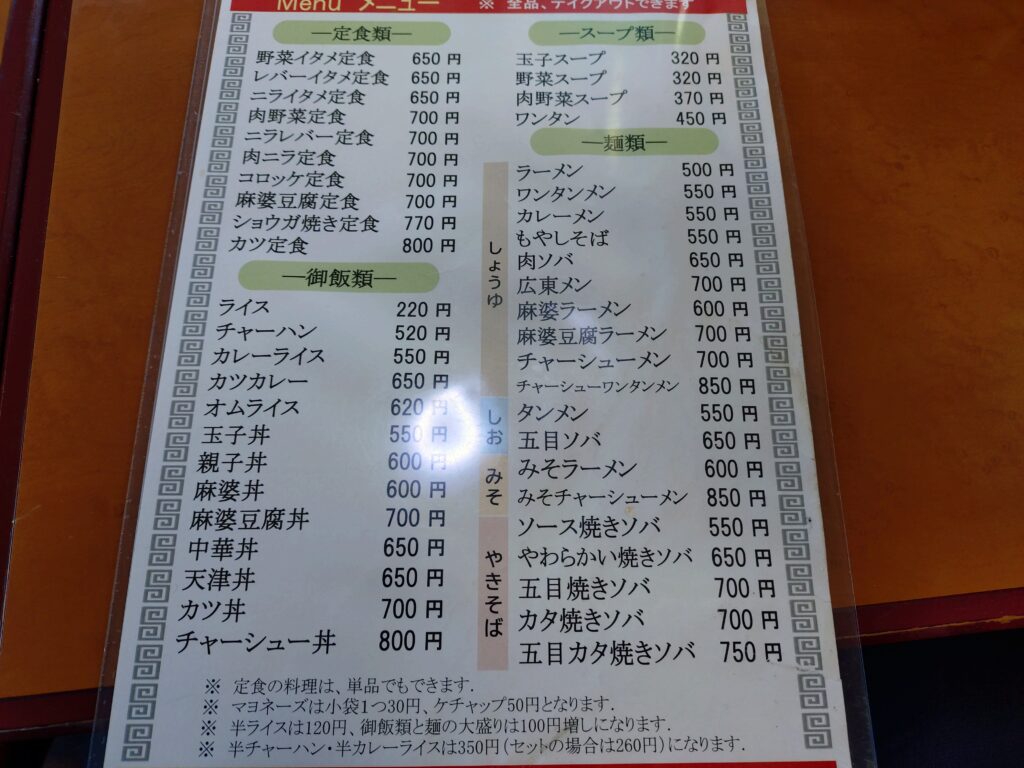 Menu メニュー
※ 全品、テイクアウトできます
―定食類―
野菜イタメ定食 650 円
レバーイタメ定食 650 円
ニライタメ定食 650 円
肉野菜定食 700 円
ニラレバー定食 700 円
肉ニラ定食 700 円
コロッケ定食 700 円
麻婆豆腐定食 700 円
ショウガ焼き定食 770 円
カツ定食 800 円
―御飯類―
ライス 220 円
チャーハン 520 円
カレーライス 550 円
カツカレー 650 円
オムライス 620 円
玉子丼 550 円
親子丼 600 円
麻婆丼 600 円
麻婆豆腐丼 700 円
中華丼 650 円
天津丼 650 円
カツ丼 700 円
チャーシュー丼 800 円
―スープ類―
玉子スープ 320 円
野菜スープ 320 円
肉野菜スープ 370 円
ワンタン 450 円
―麺類―
しょうゆ
ラーメン 500 円
ワンタンメン 550 円
カレーメン 550 円
もやしそば 550 円
肉ソバ 650 円
広東メン 700 円
麻婆ラーメン 600 円
麻婆豆腐ラーメン 700 円
チャーシューメン 700 円
チャーシューワンタンメン 850 円
しお
タンメン 550 円
五目ソバ 650 円
みそ
みそラーメン 600 円
みそチャーシューメン 850 円
やきそば
ソース焼きソバ 550 円
やわらかい焼きソバ 650 円
五目焼きソバ 700 円
カタ焼きソバ 700 円
五目カタ焼きソバ 750 円
※ 定食の料理は、単品でもできます.
※ マヨネーズは小袋1つ30円、ケチャップ50円となります.
※ 半ライスは120円、御飯類と麺の大盛りは100円増しになります.
※ 半チャーハン・半カレーライスは350円(セットの場合は260円)になります.